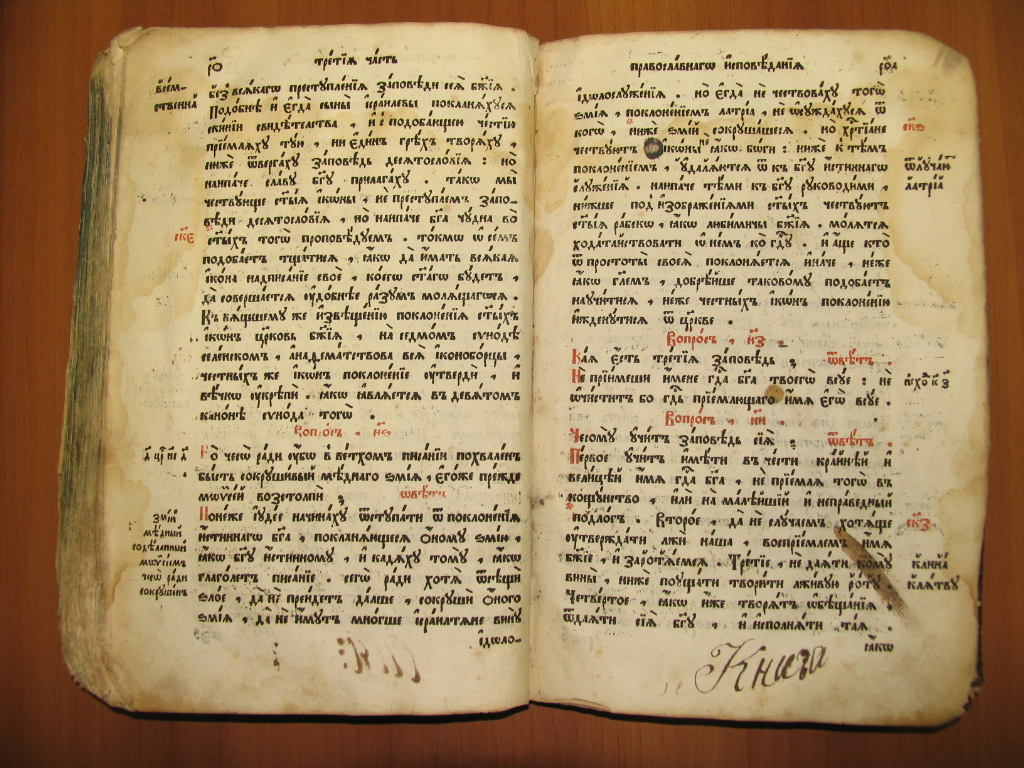 ро
третїѧ часть
всѧм-
ственна
без всѧкагѡ преступленїѧ заповѣди сеѧ бж҃їѧ .
Подобнѣ и҆ є҆гда сыны і҆зраилевы покланѧхуѧ
скинїи свидѣтелства , и҆ с подобающею честїю
прїемлѧху тую , ни є҆динъ грѣхъ творѧху ,
ниже ѿвергаху заповѣдь десѧтословїѧ : но
наипаче славу бг҃у прилагаху . такѡ мы
чествующе ст҃ыѧ і҆кѡны , не преступлѧемъ запо-
вѣди десѧтословїѧ , но наипаче бг҃а чудна во
ст҃ыхъ тогѡ проповѣдуемъ . токмѡ ѡ҆ семъ
подобаетъ тщатисѧ , ꙗ҆кѡ да и҆мать всѧкаѧ
і҆кона надписанїе своѐ , коегѡ ст҃агѡ будетъ ,
да совершаетсѧ ѹ҆добнѣе разумъ молѧщагѡсѧ .
Къ вѧщшему же и҆звѣщенїю поклоненїѧ ст҃ыхъ
і҆кѡнъ церковь бж҃їѧ , на седмомъ сѵнодѣ
вселенскомъ , анаѳематствова всѧ і҆коноборцы ,
честныхъ же і҆кѡнъ поклоненїе ѹ҆тверди , и҆
вѣчнѡ ѹ҆крѣпи . ꙗ҆кѡ ꙗ҆влѧетсѧ въ девѧтомъ
канѡнѣ сѵнода тогѡ .
Вопросъ , н҃ѕ
По чесѡ ради ѹ҆бѡ в ветхомъ писанїи похваленъ
бысть сокрушивый мѣднаго ѕмїа , є҆гоже прежде
мѡѵсей возстолпи ; ѿвѣтъ
Понеже і҆удее начинаху ѿступати ѿ поклоненїѧ
и҆стиннагѡ бг҃а , покланѧющесѧ ѻ҆ному ѕмїю ,
ꙗ҆кѡ бг҃у и҆стинному , и҆ кадѧху тому , ꙗ҆кѡ
глаголетъ писанїе . сегѡ ради хотѧ ѿсѣщи
ѕлое , да не прейдетъ далше , сокруши ѻ҆ного
ѕмїа , да не и҆мутъ многше і҆зраилтѧне вину
і҆дѡло-
ск҃е
змїй
мѣдный
содѣланный
мѡѵсеемъ
чесѡ ради
сокрушенъ
православнагѡ и҆сповѣданїѧ
роа
і҆дѡлослуженїѧ . но є҆гда не чествоваху тогѡ
ѕмїа , поклоненїемъ латрїа , не ѡ҆суждахусѧ ѿ
когѡ , ниже ѕмїй сокрушашесѧ . но хрⷭ҇тїане
чествуютъ і҆кѡны не ꙗ҆кѡ боги : ниже к тѣмъ
поклоненїемъ , ѹ҆далѧютсѧ ѿ къ бг҃у и҆стиннагѡ
служенїѧ . наипаче тѣми къ бг҃у руководими ,
нижше под изображенїѧми ст҃ыхъ чествуютъ
ст҃ыѧ рабски , ꙗ҆кѡ любимичы бж҃їѧ . молѧтсѧ
ходатаиствовати ѡ҆ немъ ко гд҃у . и҆ аще кто
ѿ простоты своеѧ поклонѧетсѧ и҆наче , неже
ꙗ҆кѡ гл҃емъ , добрѣйше таковому подобаетъ
научитисѧ , неже честныхъ і҆кѡнъ поклоненїю
и҆жденутисѧ ѿ цр҃кве .
Вопросъ , н҃з
Каѧ є҆сть третїѧ заповѣдь ; ѿвѣтъ .
Не прїимеши и҆мене гд҃а бг҃а твоегѡ всуе : не
ѡ҆чиститъ бо гд҃ь прїемлющаго и҆мѧ є҆гѡ всуе .
Вопросъ , н҃и
Чесому учитъ заповѣдь сїѧ ; ѿвѣтъ .
Первое учитъ и҆мѣти въ чести крайнѣй и҆
велицѣй и҆мѧ гд҃а бг҃а , не прїемлѧ тогѡ въ
кощунство , и҆лѝ на малѣйшїй и҆ неправедный
подлогъ . Второе , да не случаемъ хотѧще
ѹ҆тверждати лжи наша , воспрїемлемъ и҆мѧ
бж҃їе , и҆ заротѧемсѧ . Третїе , не даѧти кому
вины , ниже поущати творити лживую роту .
Четвертое , ꙗ҆кѡ и҆же творѧтъ ѡ҆бѣщанїѧ .
ѿдаѧти сїѧ бг҃у , и҆ и҆сполнѧти таѧ .
ꙗ҆кѡ
ск҃ѕ
ѿлучан
латрїа
и҆схо҃ к҃ з҃
ск҃з
клина
клѧтву
Книга